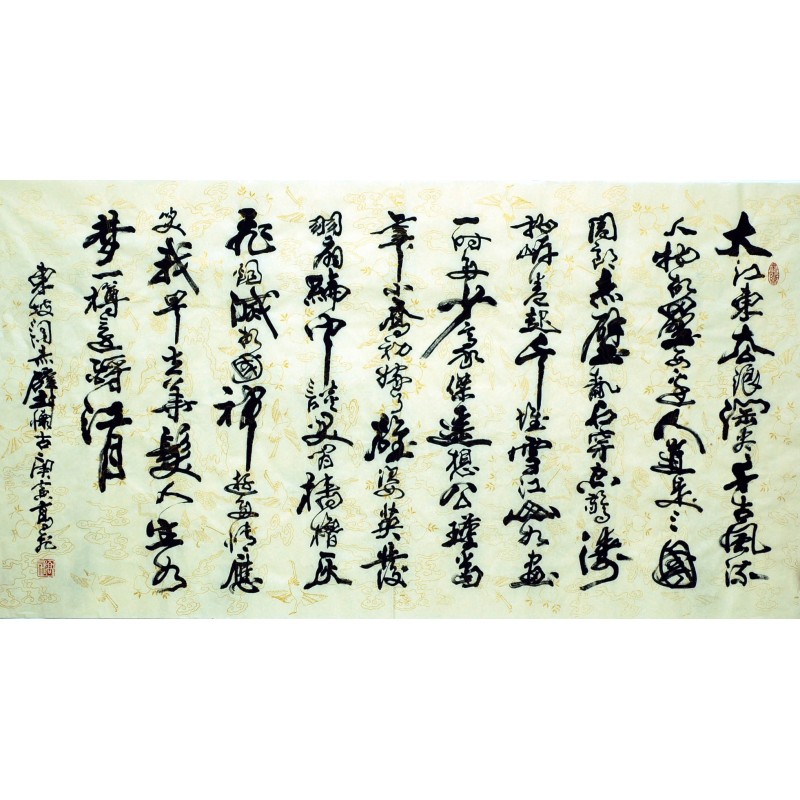 大江東去浪淘盡千古風流
人物故壘西邊人道是三國
周郎赤壁亂石穿空驚濤
拍岸卷起千堆雪江山如畫
一時多少豪傑遙想公瑾當
年小喬初嫁了雄姿英發
羽扇綸巾談笑間檣櫓灰
飛煙滅故國神遊多情應
笑我早生華髮人生如
夢一樽還酹江月
東坡詞赤壁懷古庚寅高